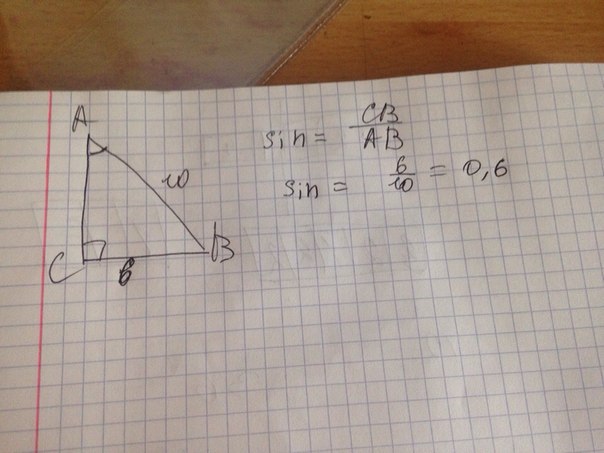 A
10
C
6
B
sin = CB/AB
sin = 6/10 = 0,6